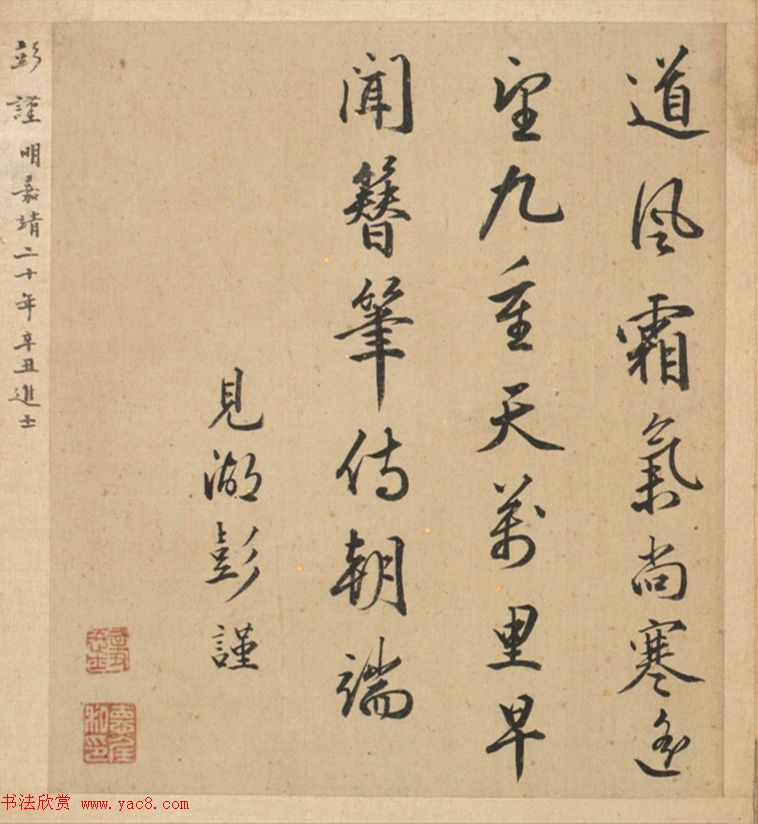 道風霜氣尚寒遥
望九重天萬里早
聞簪筆侍朝端
見湖彭謹
彭謹 明嘉靖二十年辛丑進士
书法欣赏 www.yac8.com